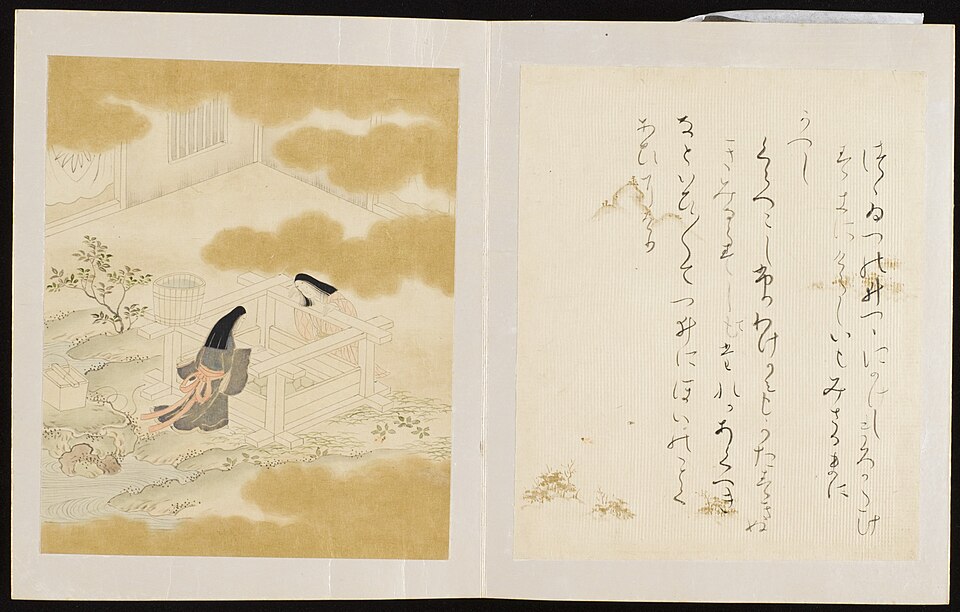 つゝゐつの井つゝにかけしまろかたけ
すきにけらしないもみさるまに
かへし
くらへこしふりわけかみもかたすきぬ
きみならすしてたれかあくへき
なといひ〱てつ井にほいのことく
あひにけり